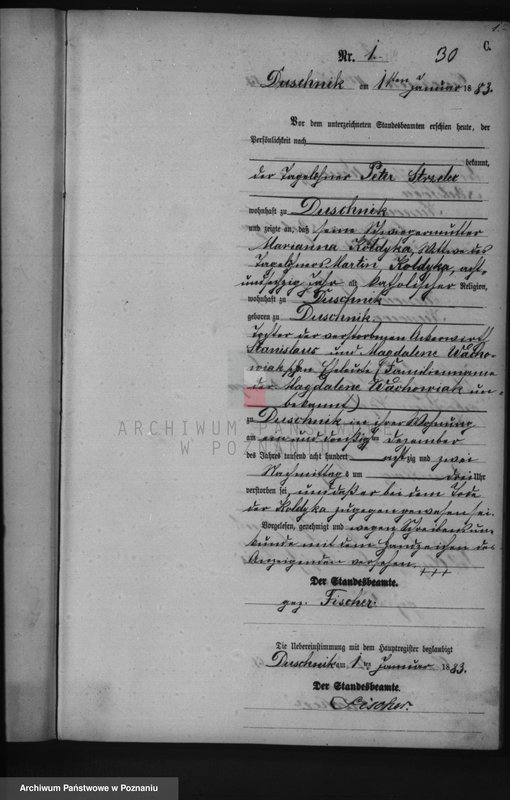 1.
C.
Nr. 1. 30
Duschnik am 1ten Januar 1883.
Vor dem unterzeichneten Standesbeamten erschien heute, der
Persönlichkeit nach
bekannt,
der Tagelöhner Peter Strzelec
wohnhaft zu Duschnik
und zeigte an, daß seine Schwiegermutter
Marianna Koldyka, Wittwe des
Tagelöhners Martin Koldyka, acht
undsechzig Jahr alt, katholischer Religion,
wohnhaft zu Duschnik
geboren zu Duschnik
Tochter der verstorbenen Ackerwirth
Stanislaus und Magdalene Wacho-
wiak'schen Eheleute (Familienname
der Magdalene Wachowiak un-
bekannt)
zu Duschnik in ihrer Wohnung
am ein und dreißigten Dezember
des Jahres tausend acht hundert achtzig und zwei
Nachmittags um drei Uhr
verstorben sei, und daß er bei dem Tode
der Koldyka zugegen gewesen sei.
Vorgelesen, genehmigt und wegen Schreibensun-
kunde mit dem Handzeichen des
Anzeigenden versehen. +++
Der Standesbeamte.
gez. Fischer.
Die Uebereinstimmung mit dem Hauptregister beglaubigt
Duschnik am 1ten Januar 1883.
Der Standesbeamte.
Fischer.
ARCHIWUM PAŃSTWOWE
W POZNANIU
Archiwum Państwowe w Poznaniu